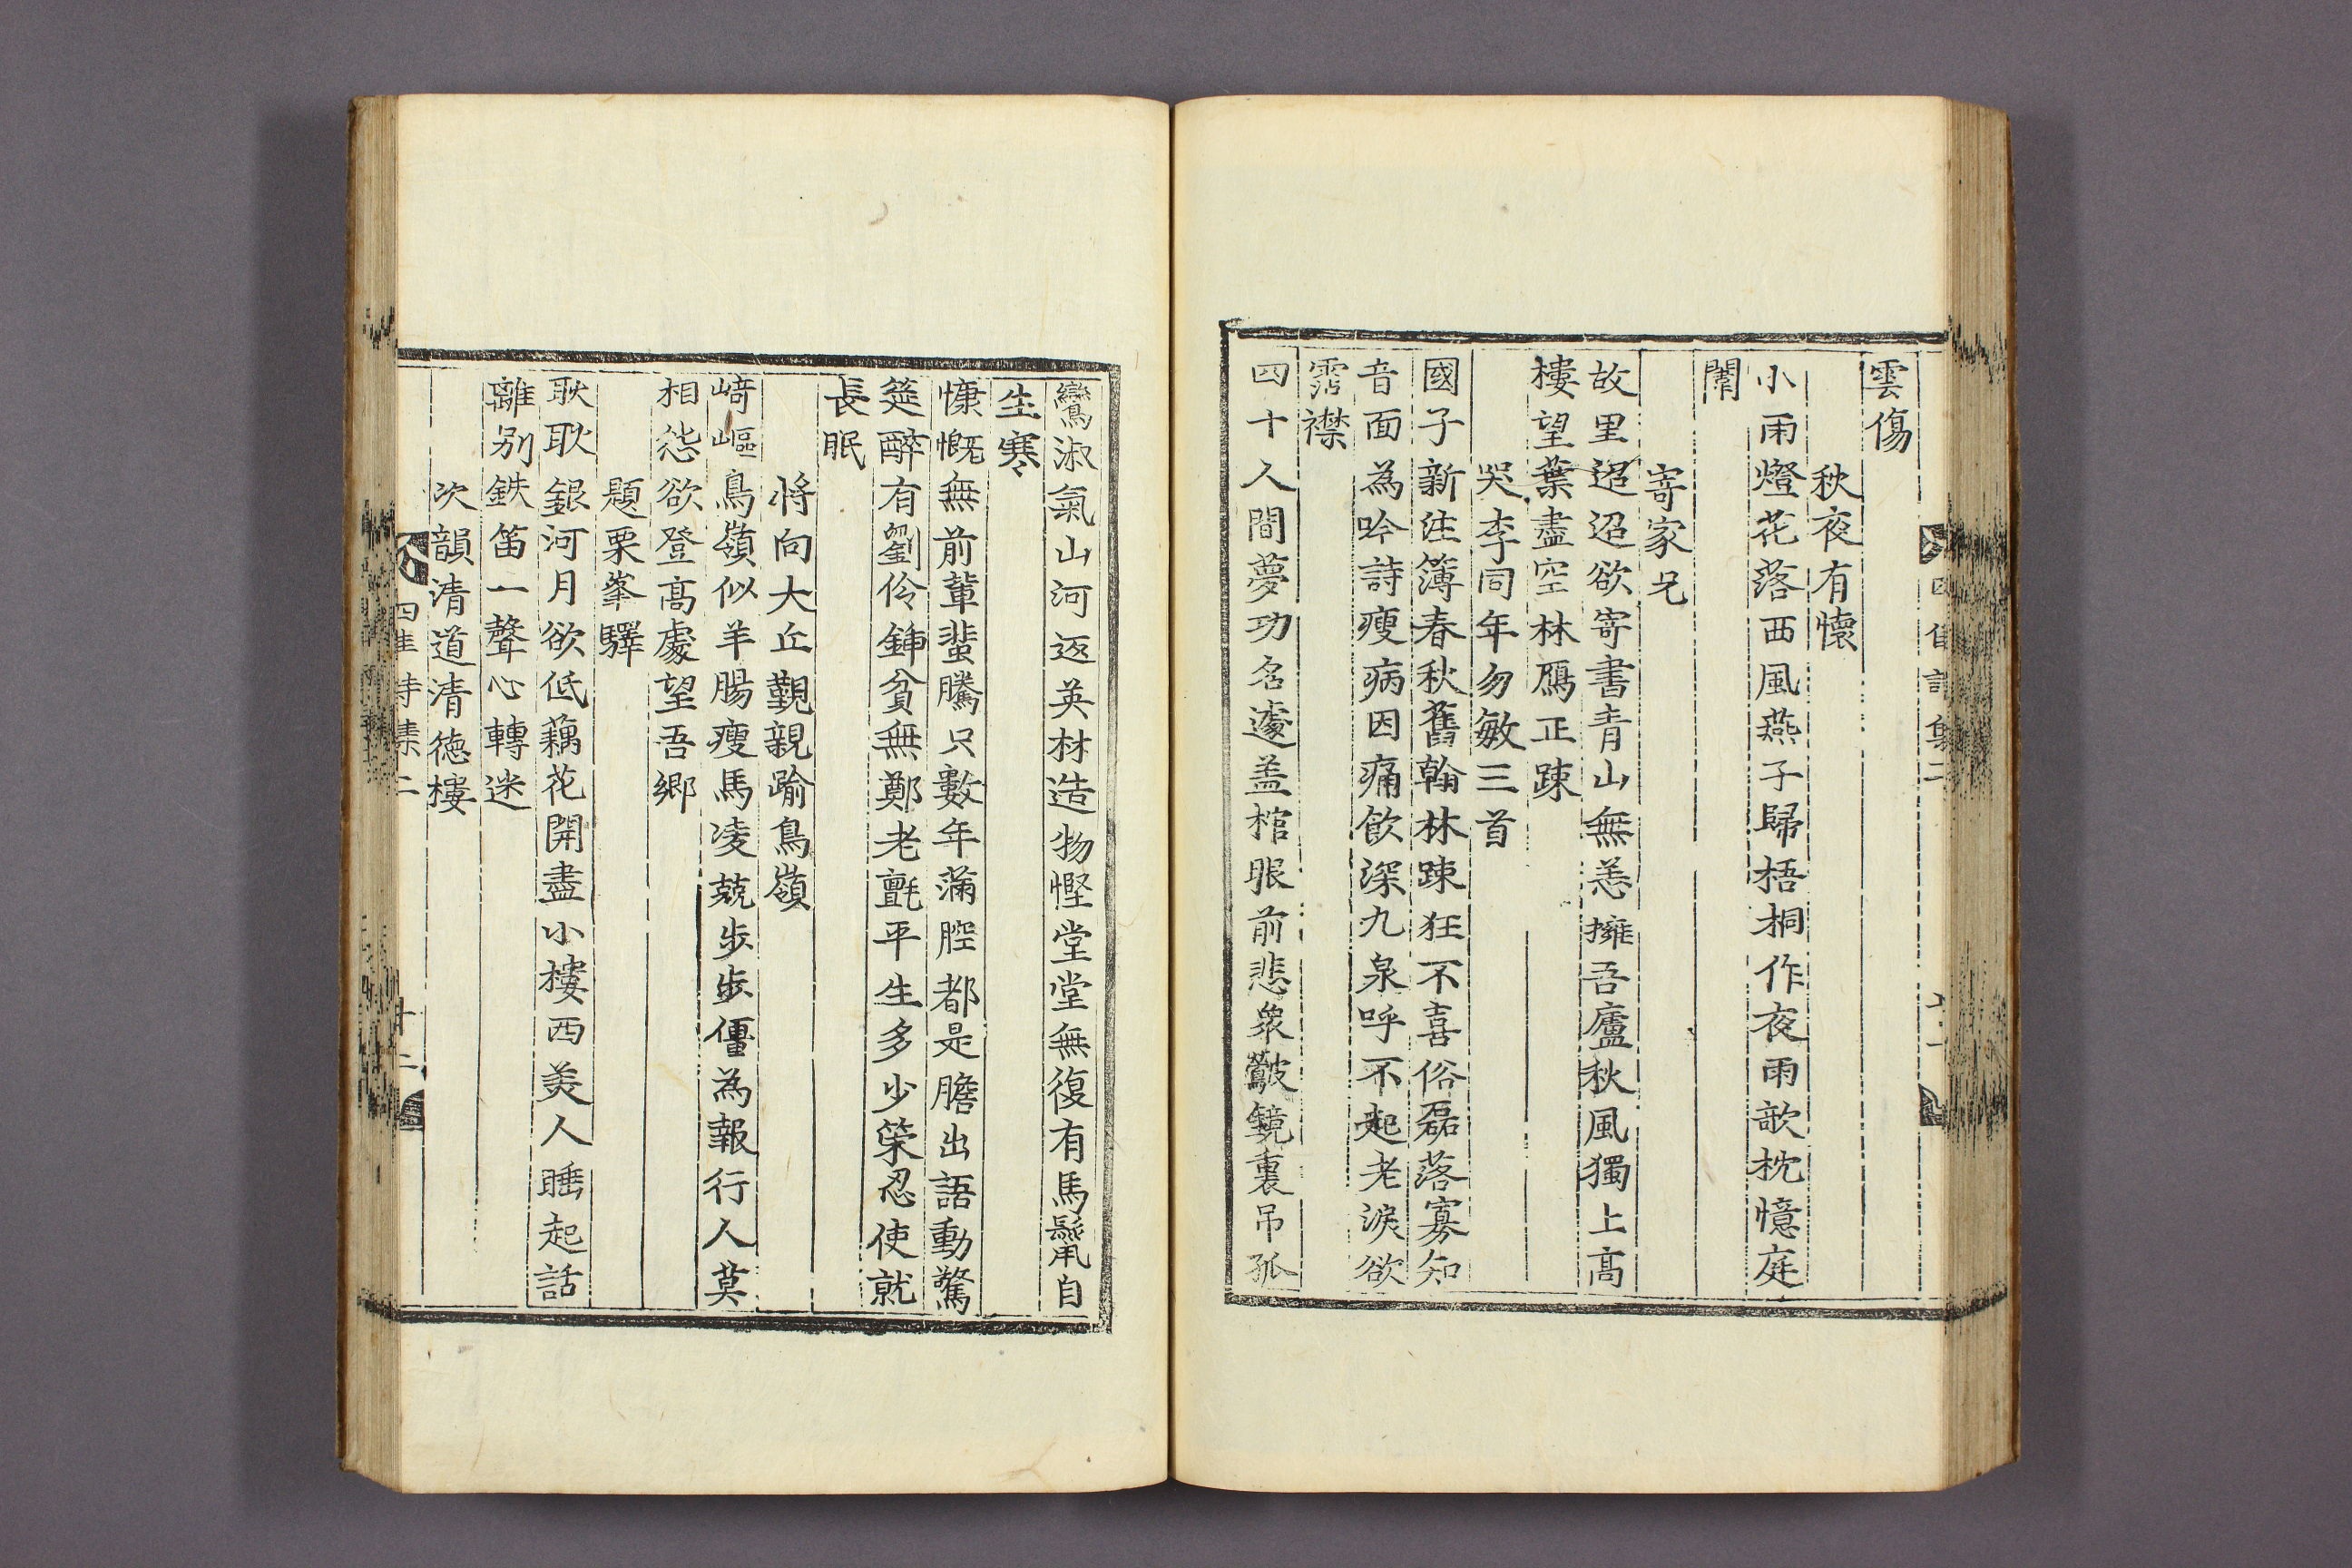 雲傷
秋夜有懷
小雨燈花落西風燕子歸梧桐作夜雨欹枕憶庭
闈
寄家兄
故里迢迢欲寄書青山無恙擁吾廬秋風獨上高
樓望葉盡空林鴈正踈
哭李同年勿敏三首
國子新注簿春秋舊翰林踈狂不喜俗磊落寡知
音面為吟詩瘦病因痛飲深九泉呼不起老淚欲
霑襟
四十人間夢功名遽盖棺眼前悲衆皺鏡裏吊孤
鸞淑氣山河返英材造物慳堂堂無復有馬鬣自
生寒
慷慨無前輩蜚騰只數年滿腔都是膽出語動驚
筵醉有劉伶鍤貧無鄭老氈平生多少策忍使就
長眠
將向大丘覲親踰鳥嶺
﨑嶇鳥嶺似羊腸瘦馬凌兢步步僵為報行人莫
相恠欲登高處望吾鄉
題栗峯驛
耿耿銀河月欲低藕花開盡小樓西美人睡起話
離别鉄笛一聲心轉迷
次韻清道清德樓
四佳詩集二
十二